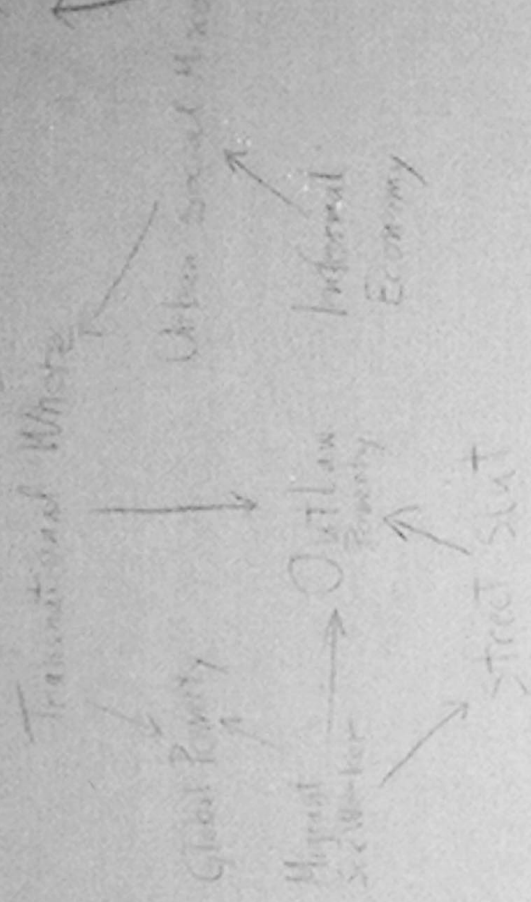 Transnational Whore
Global Poverty
Urban Social
Migrant
Sex Worker
OutLaw
Poverty
Informal
Economy
Street Slut